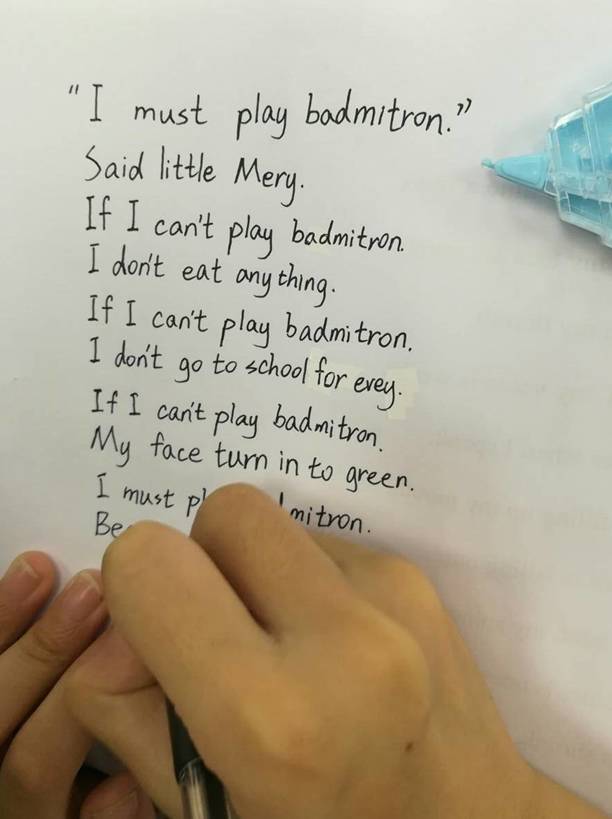 "I must play badmitron."
Said little Mery.
If I can't play badmitron.
I don't eat any thing.
If I can't play badmitron.
I don't go to school for evey.
If I can't play badmitron.
My face turn in to green.
I must